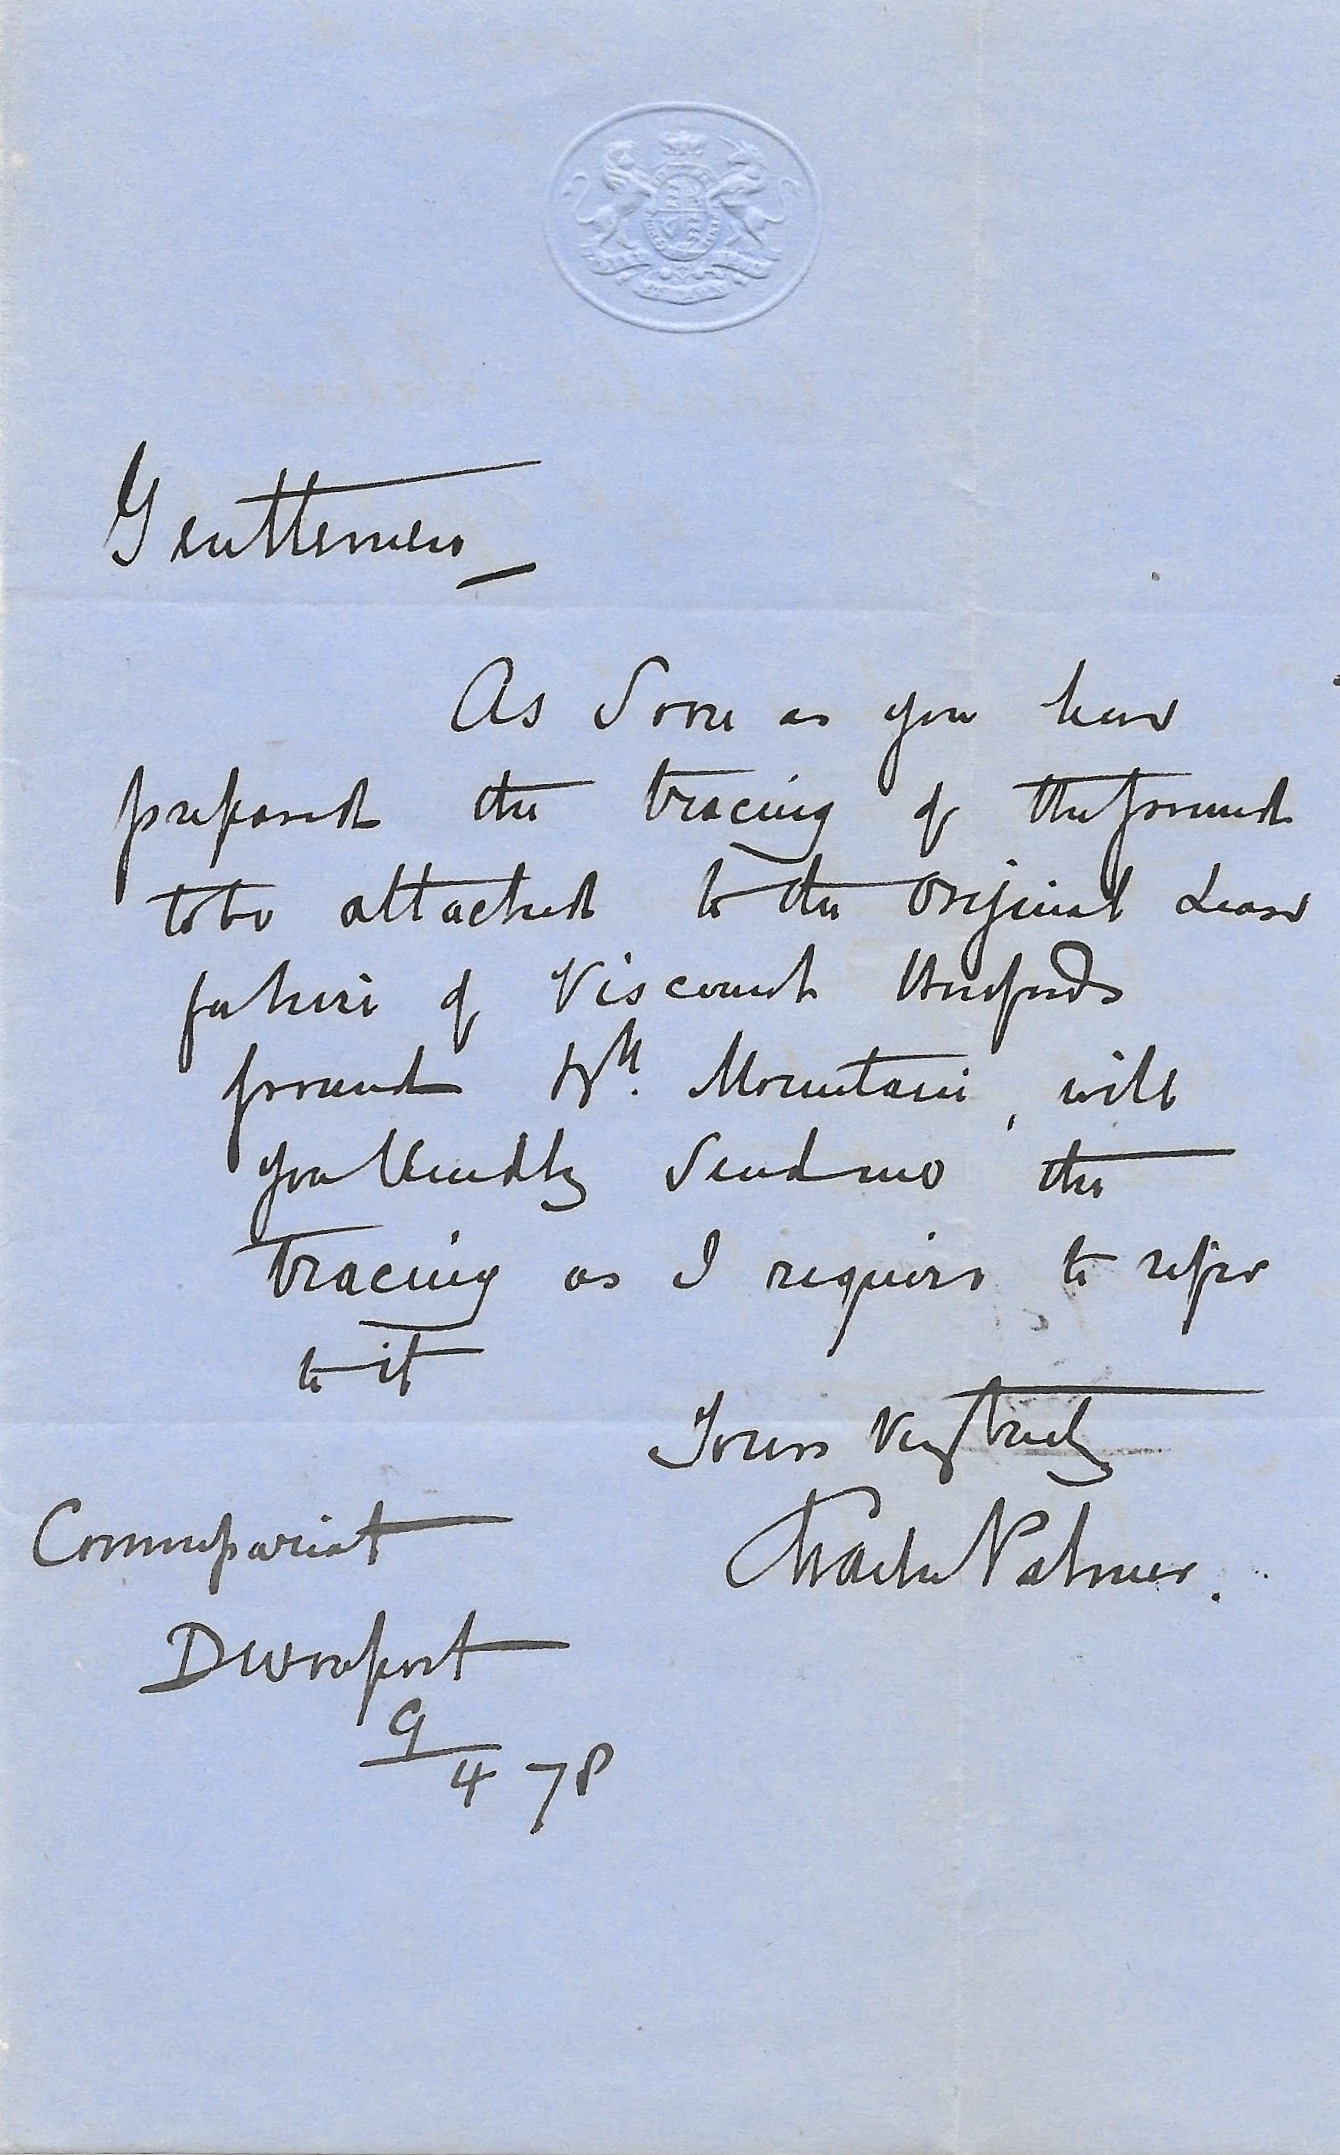 Gentlemen
As Soon as you have
prepared the tracing of the ground
to be attached to the Original Lease
of Viscount
ground Wh. Mountain, will
you kindly Send me the
tracing as I require to refer
to it
Yours Very truly
Charles Palmer.
Commissariat
Devonport
9/4 78